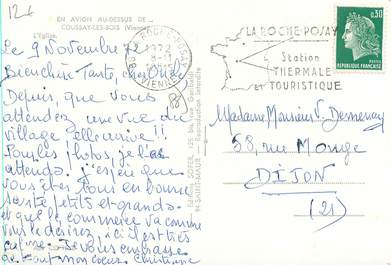 12+
EN AVION AU-DESSUS DE ...
COUSSAY-LES-BOIS (Vienne)
L'Eglise.
Le 9 Novembre 72
Bien chère Tante, cher Oncle
Depuis que vous
attendez une vue du
village, elle arrive !!
Pour les photos, je les
attends. J'espère que
vous êtes tous en bonne
santé petits et grands
et que le commerce va comme
vous le désirez, ici il est très
calme. Je vous embrasse
de tout mon coeur Christiane
Editions SOFER, 125 bis, rue Garibaldi
St-SAINT-MAUR - Reproduction interdite
LA ROCHE-POSAY
1972
VIENNE
LA ROCHE-POSAY
Station
THERMALE
et TOURISTIQUE
0,30
Madame Monsieur V.
58, rue Monge
DIJON
(21)